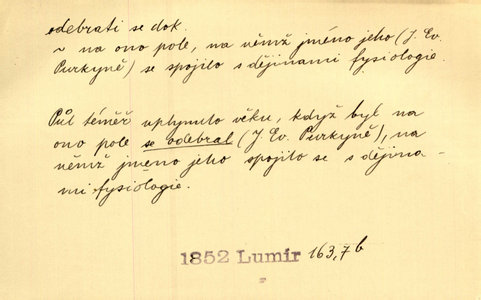 odebrati se dok.
~ na ono pole, na němž jméno jeho (J. Ev.
Purkyně) se spojilo s dějinami fysiologie.
Půl téměř uplynulo věku, když byl na
ono pole se odebral (J. Ev. Purkyně), na
němž jmeno jeho spojilo se s dějina-
mi fysiologie.
1852 Lumír 163,7b